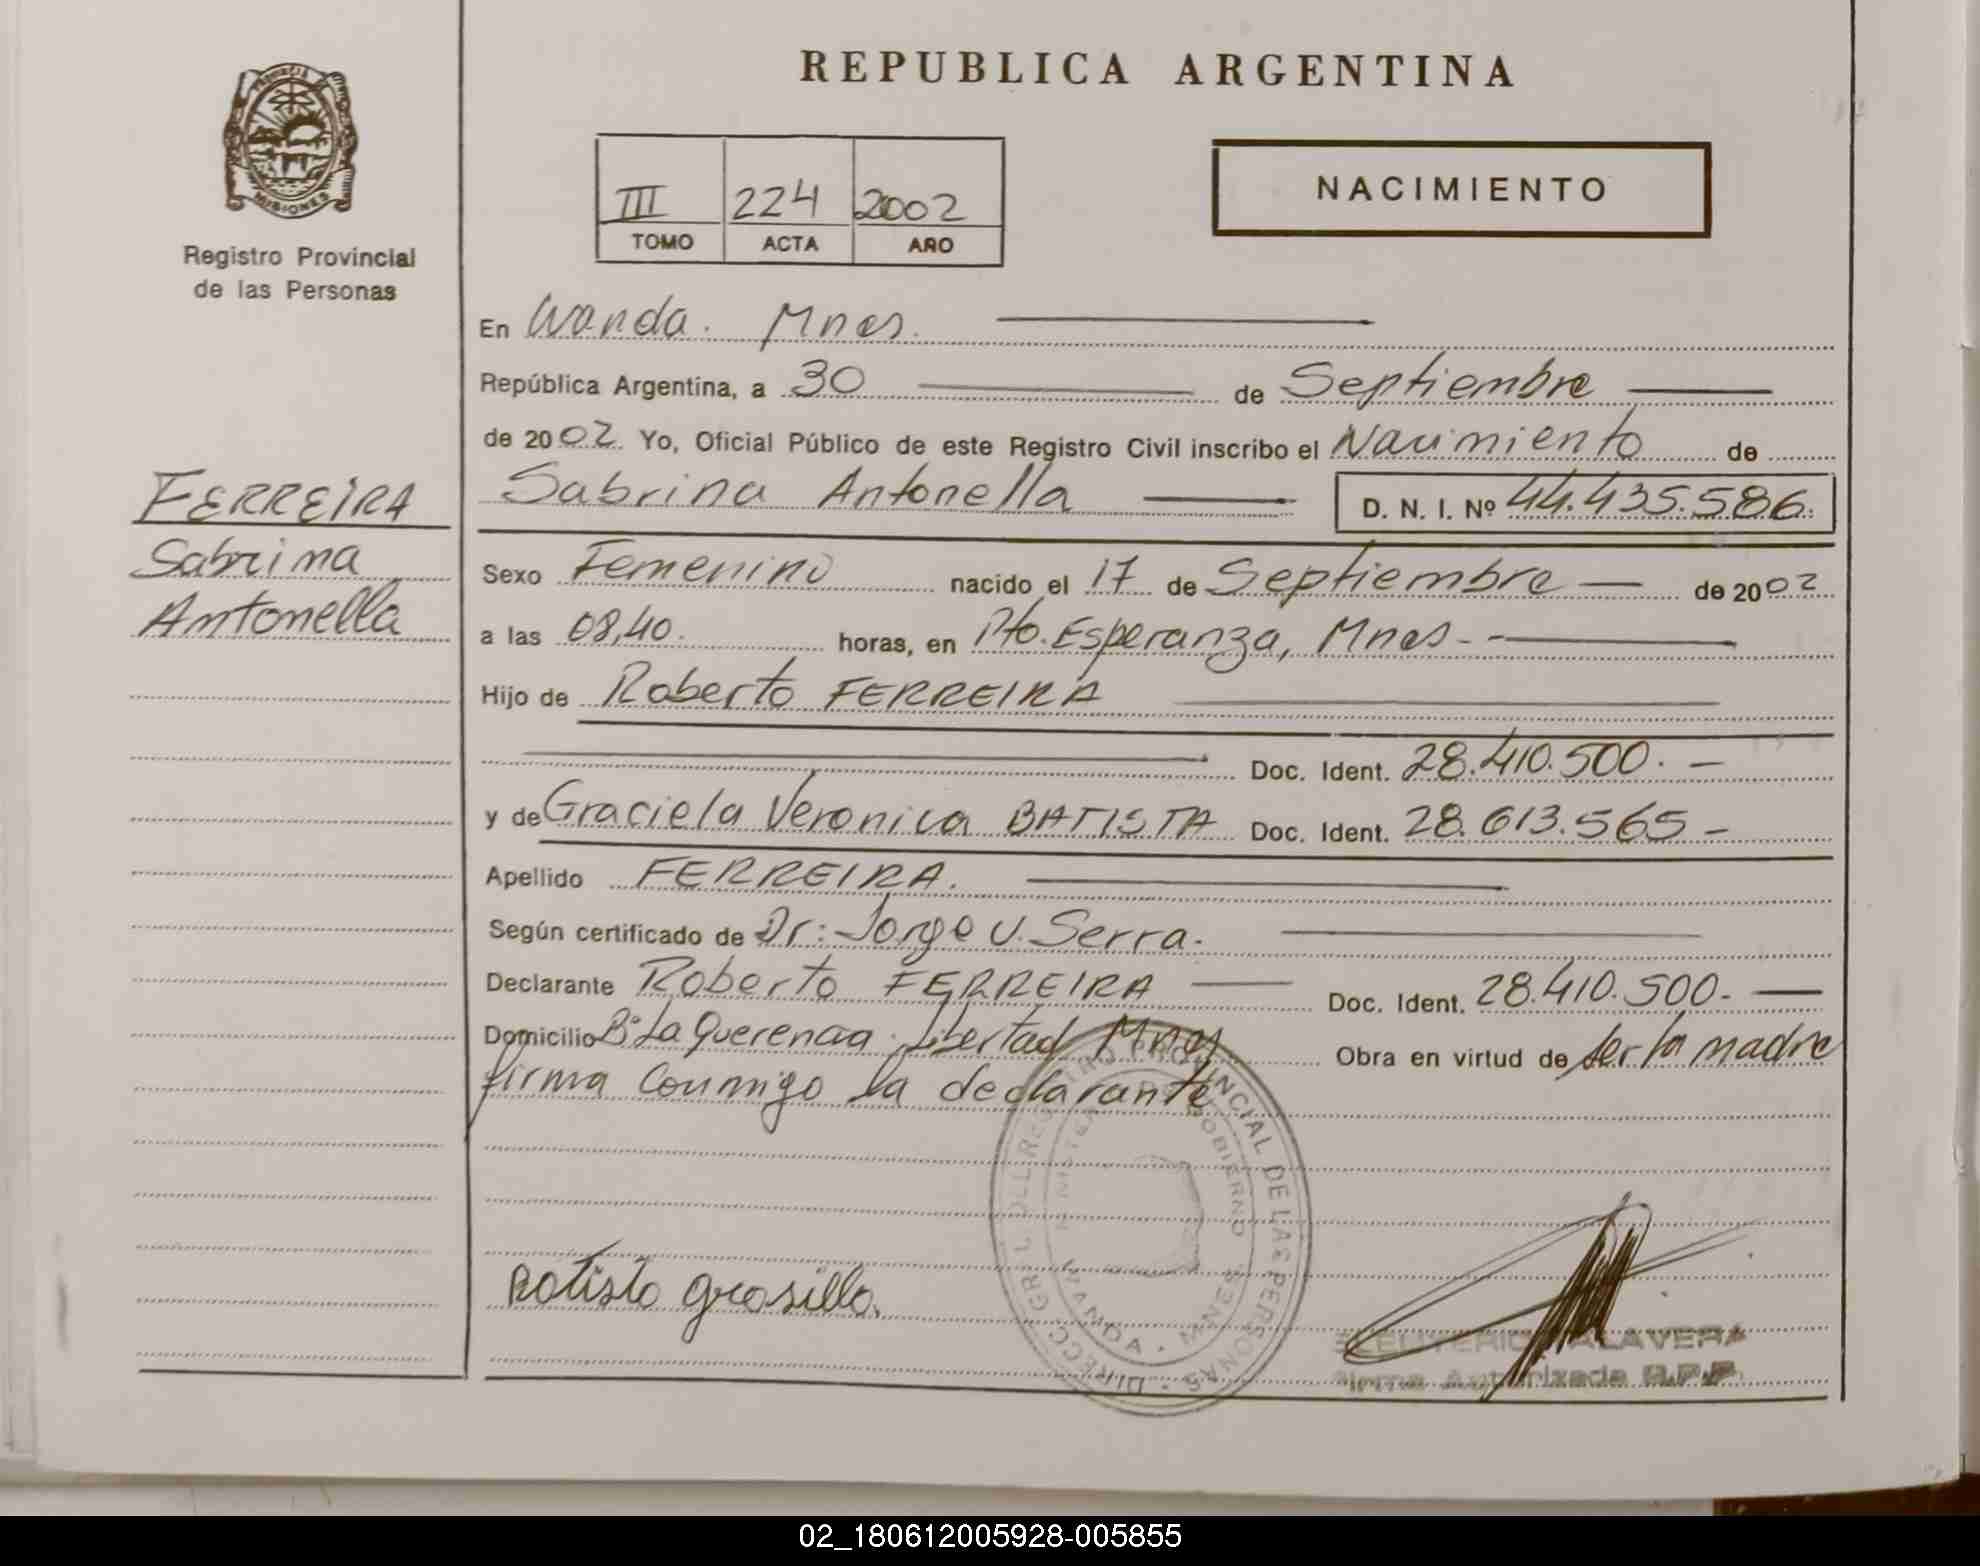 REPUBLICA ARGENTINA
PROVINCIA
MISIONES
Registro Provincial
de las Personas
III 224 2002
TOMO ACTA AÑO
NACIMIENTO
En Wanda. Mnes.
República Argentina, a 30 de Septiembre
de 2002. Yo, Oficial Público de este Registro Civil inscribo el Nacimiento de
Sabrina Antonella D. N. I. Nº 44.435.586.
FERREIRA
Sabrina
Antonella
Sexo Femenino nacido el 17 de Septiembre de 2002
a las 08,40. horas, en Pto. Esperanza, Mnes
Hijo de Roberto FERREIRA
Doc. Ident. 28.410.500.
y de Graciela Veronica BATISTA Doc. Ident. 28.613.565
Apellido FERREIRA.
Según certificado de Dr: Jorge V. Serra.
Declarante Roberto FERREIRA Doc. Ident. 28.410.500.
Domicilio Bº La Querencia. Libertad Mnes Obra en virtud de ser la madre
firma Conmigo la declarante
DIRECC. GRAL. DEL REGISTRO PROVINCIAL DE LAS PERSONAS
MINISTERIO DE GOBIERNO
WANDA - MNES.
ELEUTERIO TALAVERA
Firma Autorizada R.P.P.
02_180612005928-005855